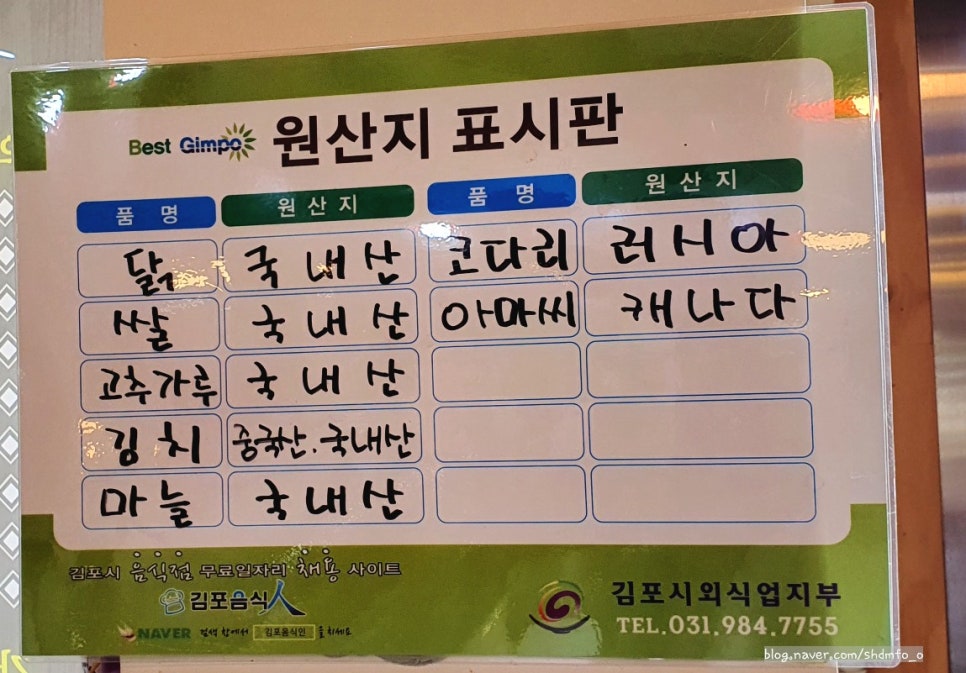 Best Gimpo 원산지 표시판
품 명 원 산 지 품 명 원 산 지
닭 국내산 코다리 러시아
쌀 국내산 아마씨 캐나다
고추가루 국내산
김치 중국산.국내산
마늘 국내산
김포시 음식점 무료일자리 채용 사이트
김포음식人
NAVER 검색창에서 김포음식인 을 치세요
김포시외식업지부
TEL.031.984.7755
blog.naver.com/shdmfo_o